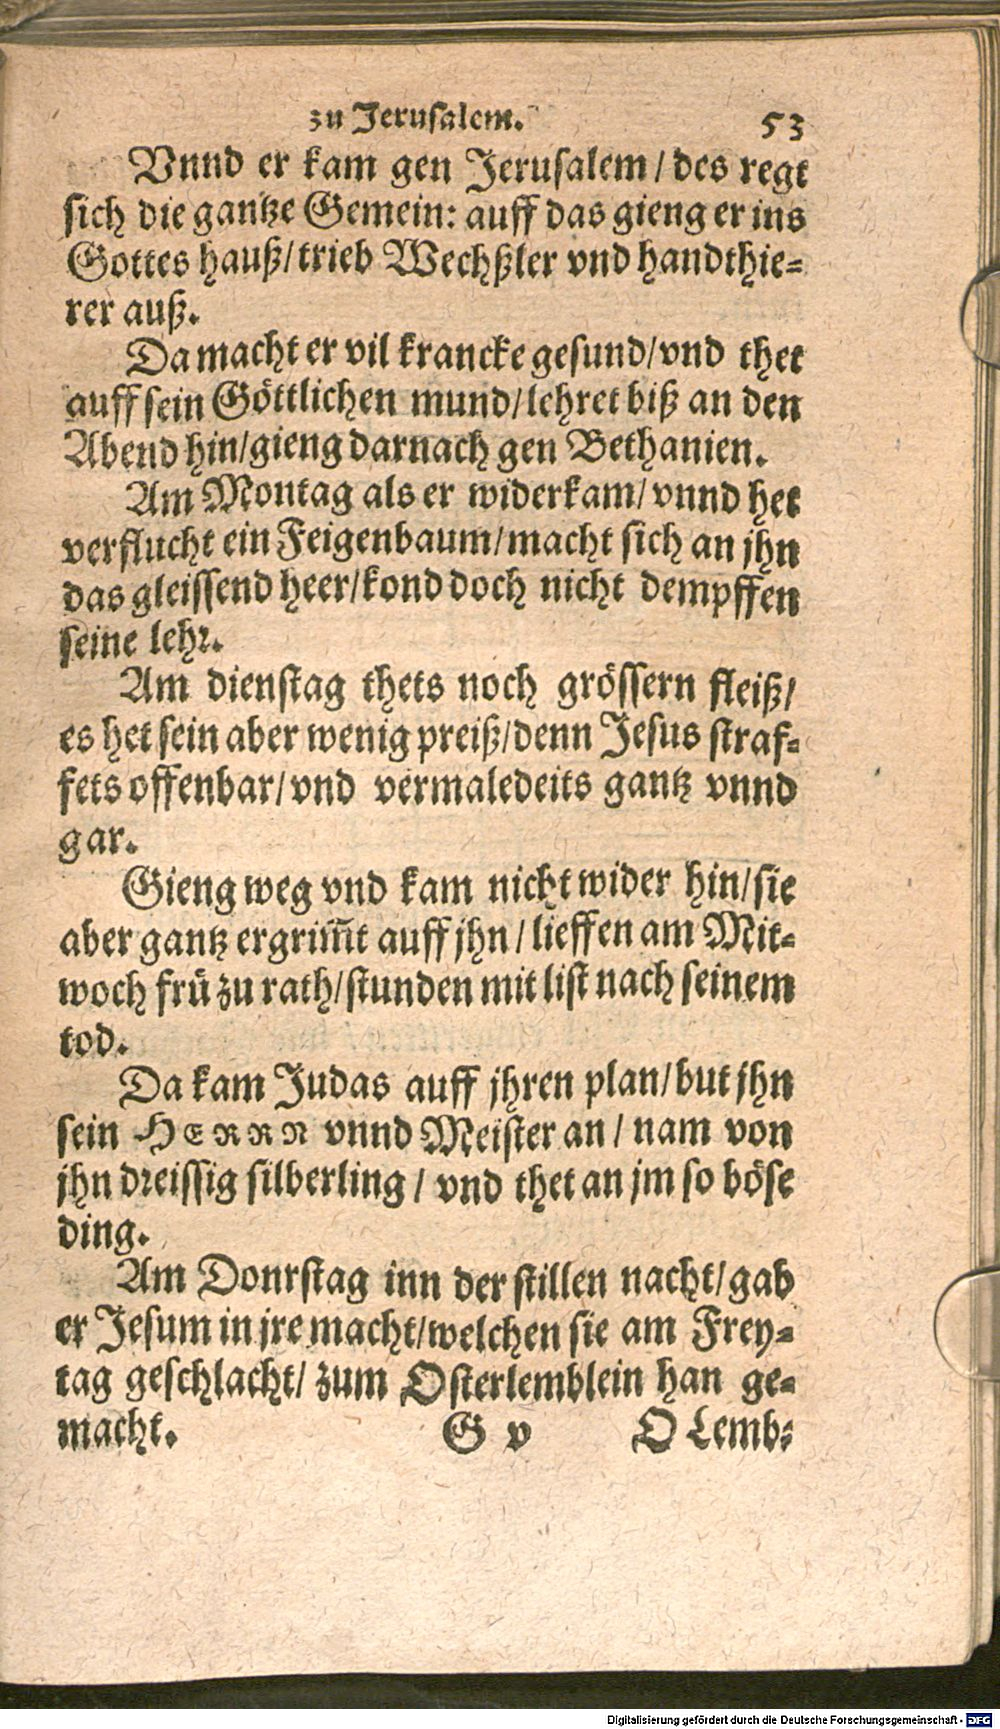 zu Jerusalem. 53
Vnnd er kam gen Jerusalem / des regt
sich die gantze Gemein: auff das gieng er ins
Gottes hauß / trieb Wechßler vnd handthie-
rer auß.
Da macht er vil krancke gesund / vnd thet
auff sein Göttlichen mund / lehret biß an den
Abend hin / gieng darnach gen Bethanien.
Am Montag als er widerkam / vnnd het
verflucht ein Feigenbaum / macht sich an jhn
das gleissend heer / kond doch nicht dempffen
seine lehr.
Am dienstag thets noch grössern fleiß /
es het sein aber wenig preiß / denn Jesus straf-
fets offenbar / vnd vermaledeits gantz vnnd
gar.
Gieng weg vnd kam nicht wider hin / sie
aber gantz ergrim̃t auff jhn / lieffen am Mit-
woch frü zu rath / stunden mit list nach seinem
tod.
Da kam Judas auff jhren plan / but jhn
sein HERRN vnnd Meister an / nam von
jhn dreissig silberling / vnd thet an jm so böse
ding.
Am Donrstag inn der stillen nacht / gab
er Jesum in jre macht / welchen sie am Frey-
tag geschlacht / zum Osterlemblein han ge-
macht. G v O Lemb-
Digitalisierung gefördert durch die Deutsche Forschungsgemeinschaft - DFG